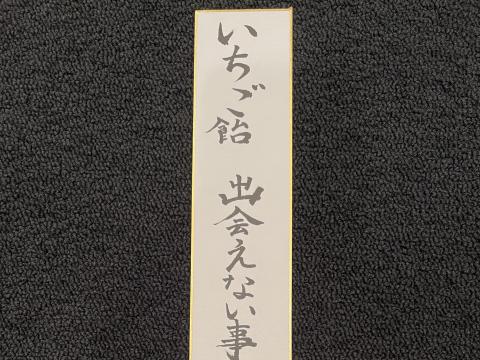 いちご飴　出会えない事